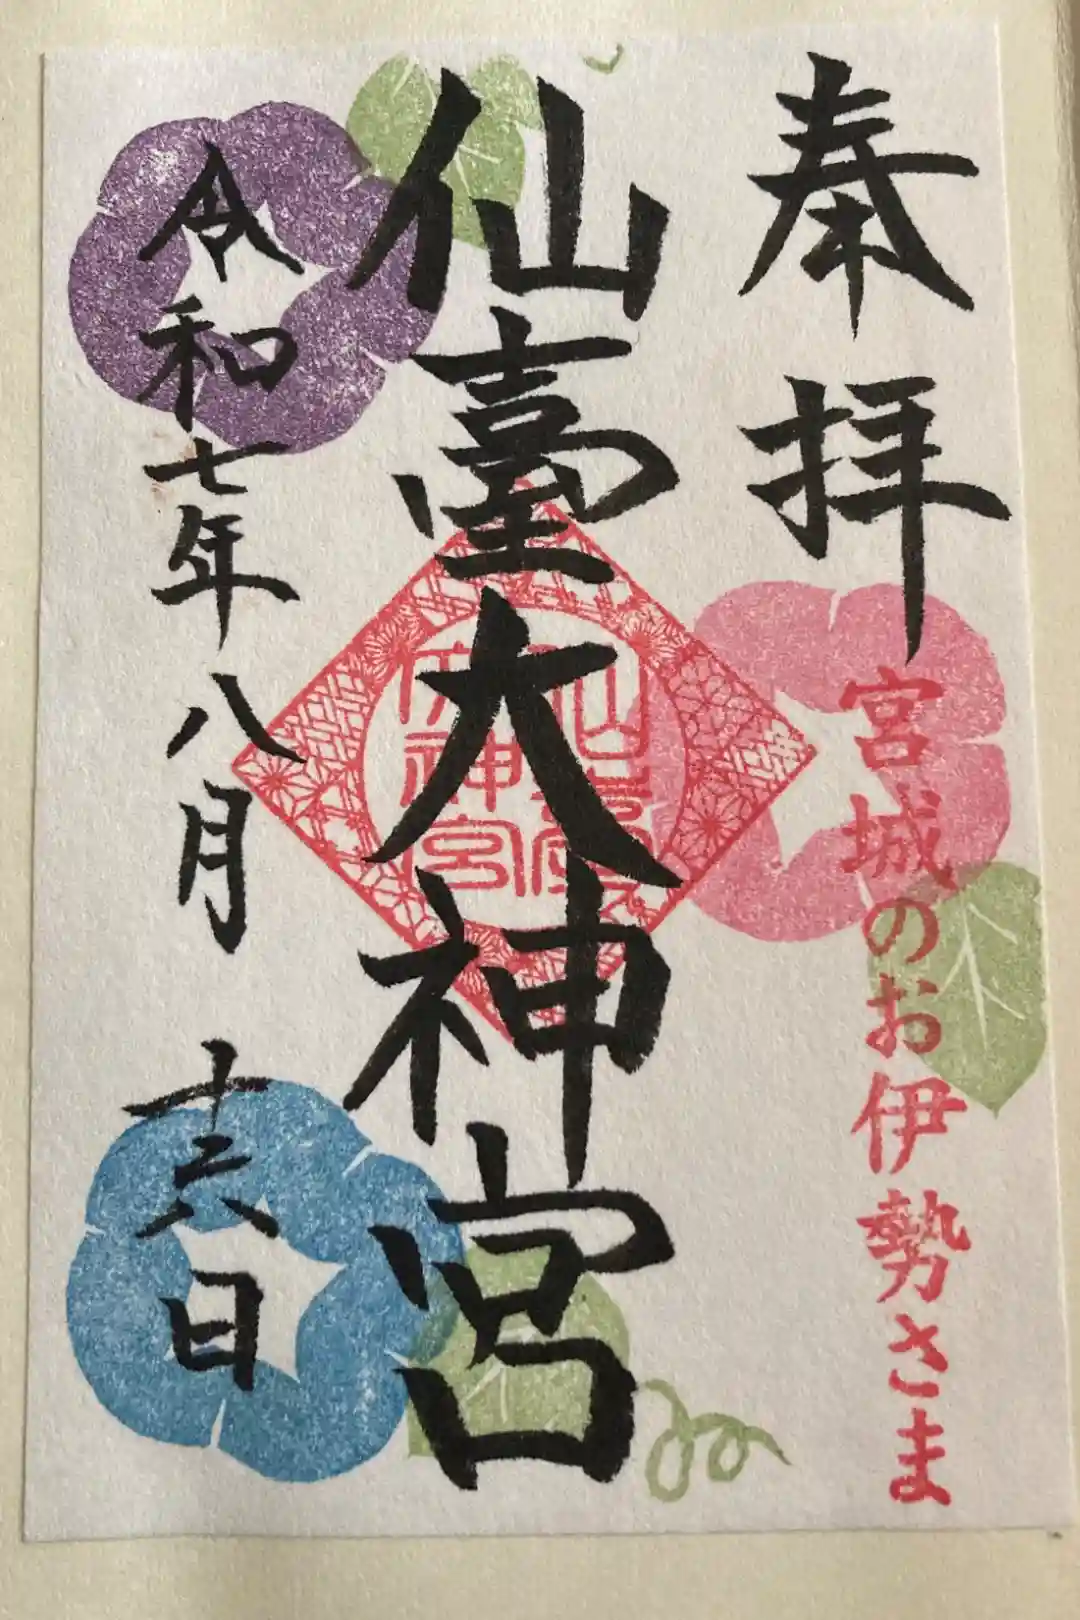 奉拝
宮城のお伊勢さま
仙臺大神宮
仙臺
大神宮
令和七年八月十六日